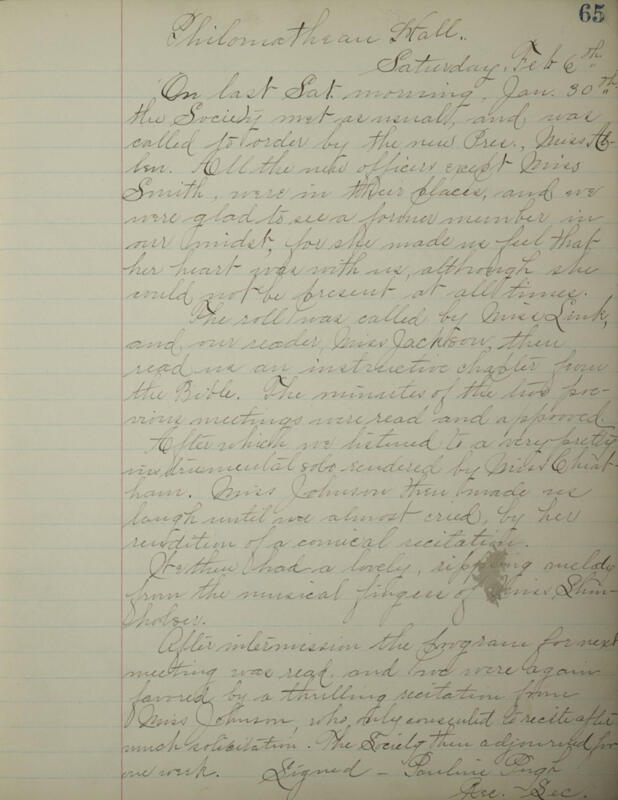 65
Philomathean Hall.
Saturday, Feb 6th
On last Sat. morning, Jan. 30th
the Society met as usual, and was
called to order by the new Pres., Miss
All the new officers except Miss
Smith, were in their places, and we
were glad to see a former member in
our midst, for she made us feel that
her heart was with us, although she
could not be present at all times.
The roll was called by Miss Link,
and our reader, Miss Jackson, then
read us an instructive chapter from
the Bible. The minutes of the two pre-
vious meetings were read and approved.
After which we listened to a very pretty
instrumental solo rendered by Miss Cheat-
ham. Miss Johnson then made us
laugh until we almost cried, by her
rendition of a comical recitation.
We then had a lovely, rippling melody
from the musical fingers of Miss Shin-
holser.
After intermission the program for next
meeting was read, and we were again
favored by a thrilling recitation from
Miss Johnson, who, only consented to recite after
much solicitation. The Society then adjourned for
one week. Signed - Pauline Pugh
Rec. - Sec.